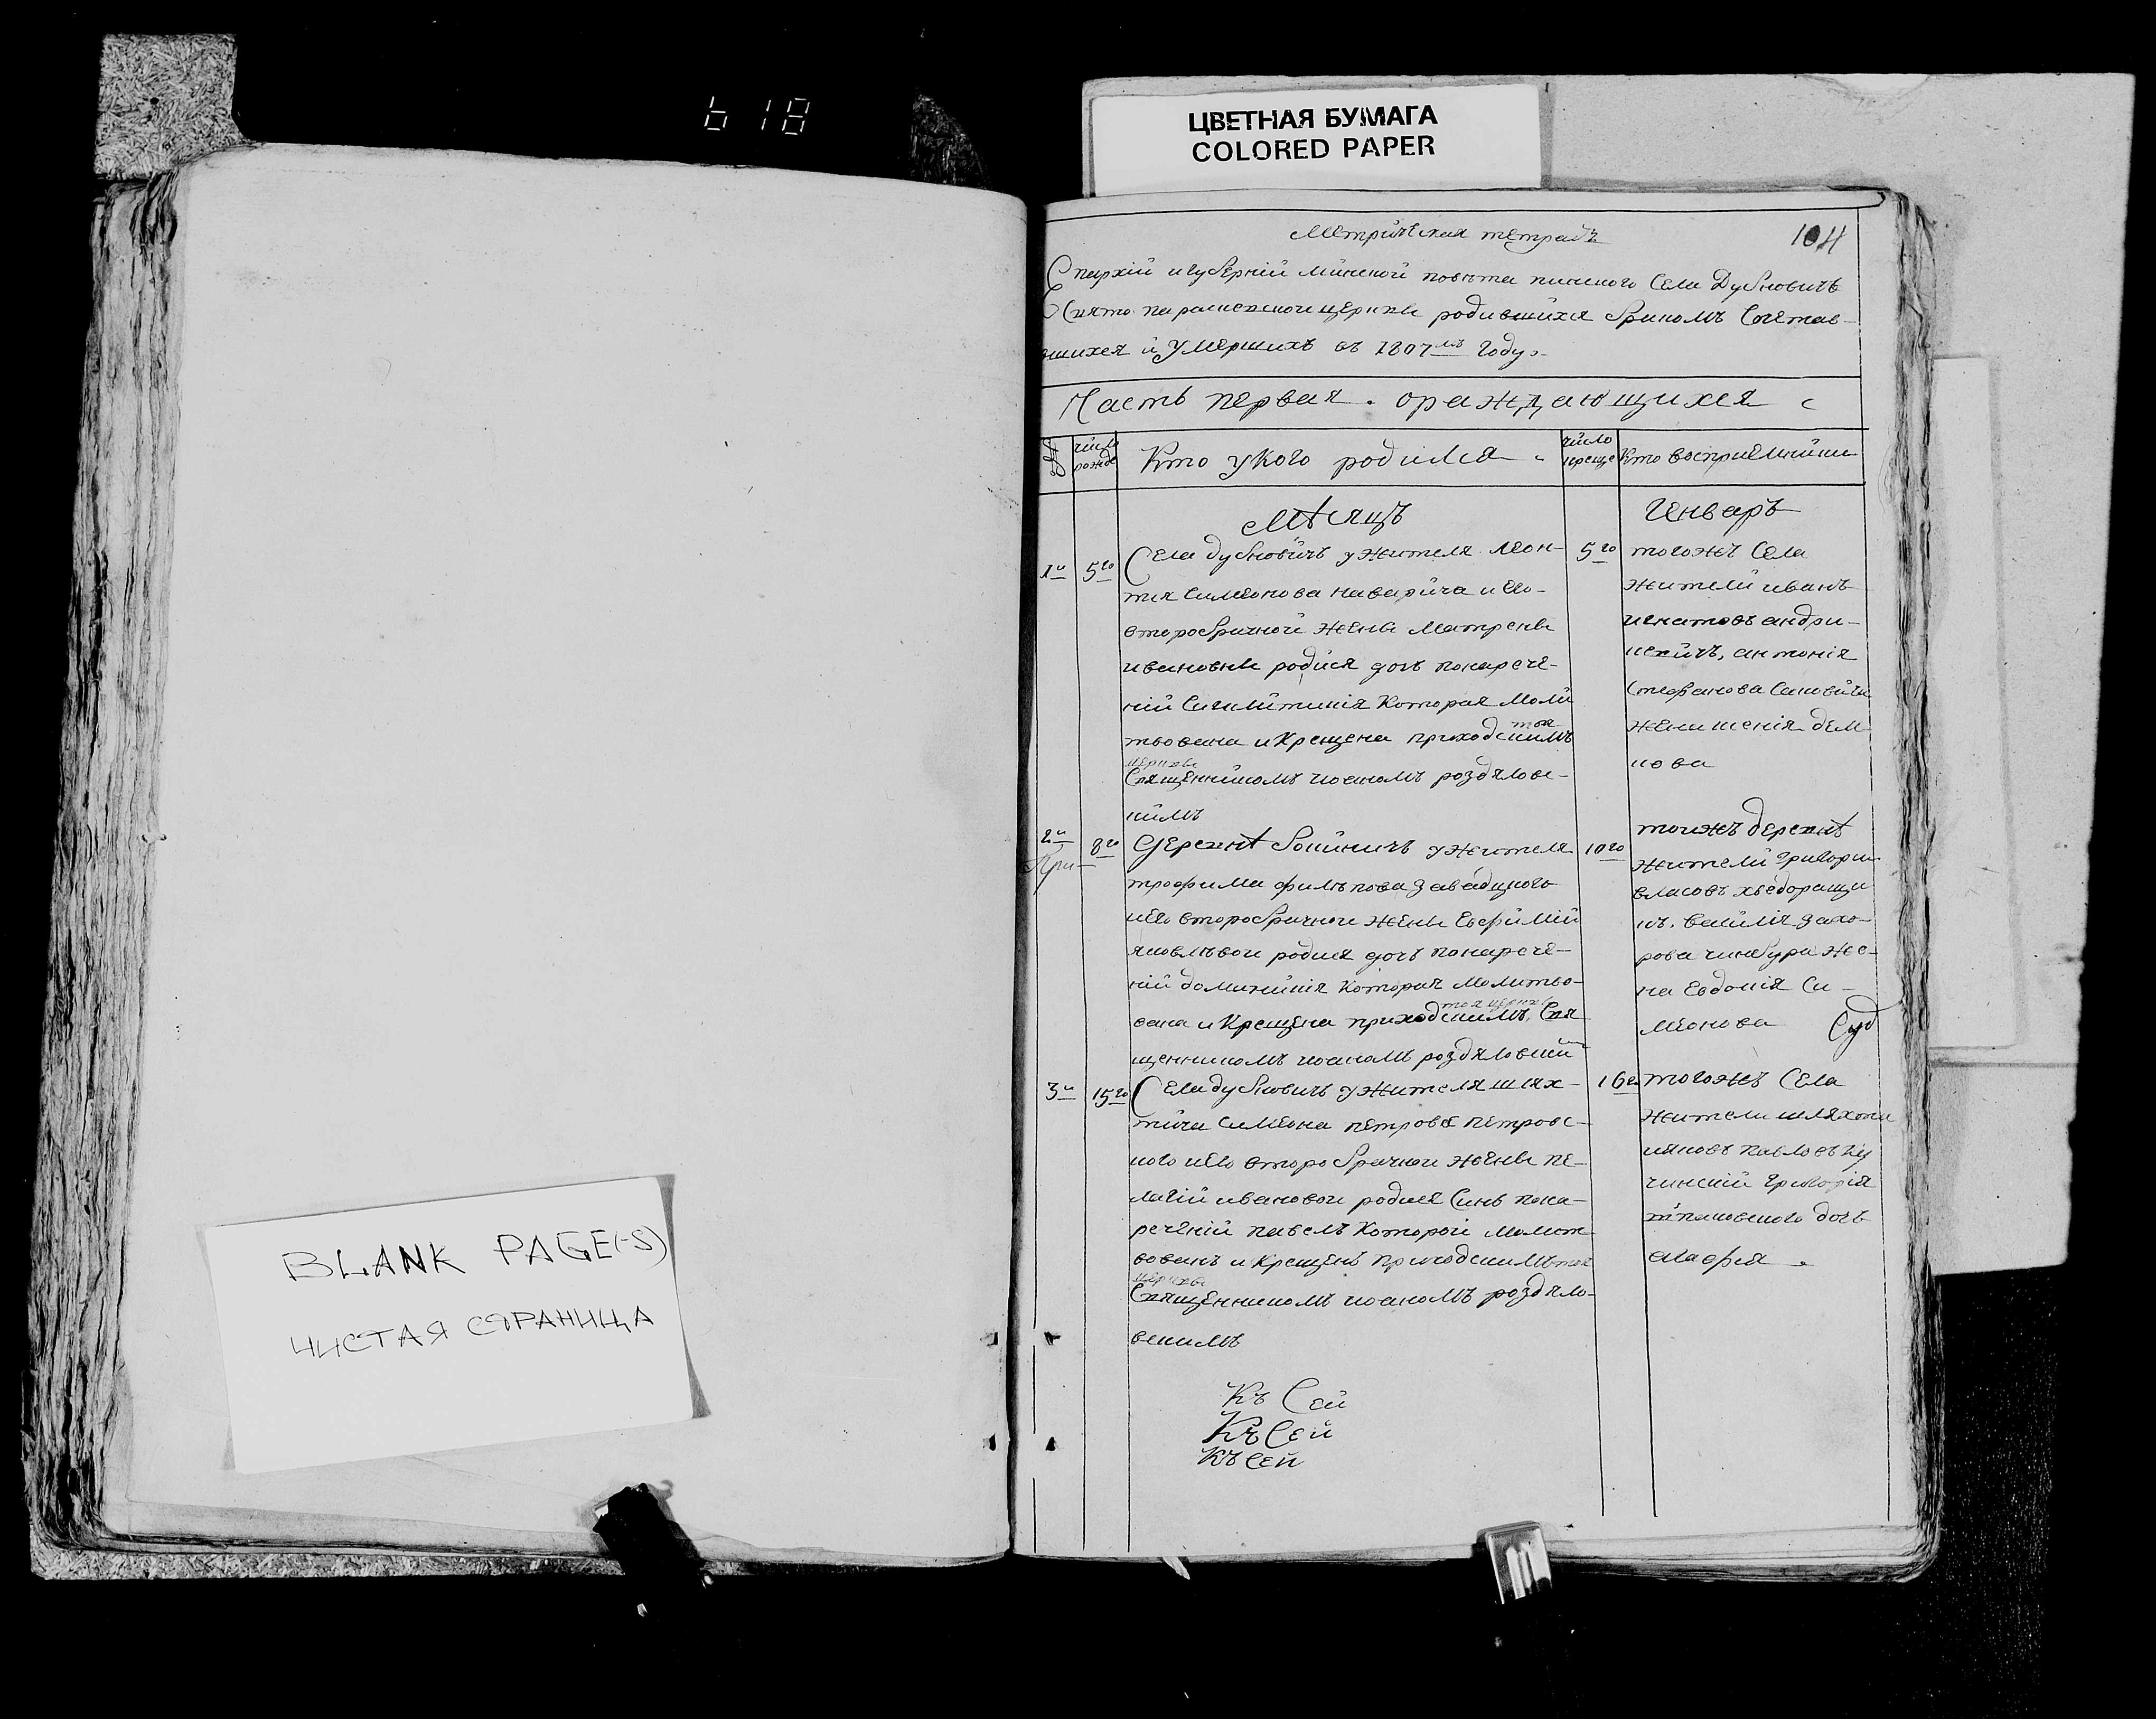 618
ЦВЕТНАЯ БУМАГА
COLORED PAPER
104
Метрическая тетрадь
Епархіи и губерніи минской повѣта пинского Села Дубновичъ
Свято параскевской церкви родившихся бракомъ Сочетав-
шихся и Умершихъ въ 1807мъ году
Часть первая о раждающихся
число рожде
Кто у кого родился
число креще
Кто воспріемники
Мѣсяцъ
Генварь
1й
5го
Села дубновичъ у жителя леон-
тия Симеонова наварича и его
второбрачной жены Матрены
ивановны родися дочь по нарече-
ній Которая моли
твована и Крещена приходскимъ
тоя церкви
Священникомъ иоаномъ роздялов-
кимъ
5го
тогожъ Села
жители иванъ
игнатовъ андри-
антонія
стефанова
жена ксенія дем-
нова
2й
8го
Деревнѣ у жителя
трофима филѣпова завадцкого
и его второбрачной жены Евфиміи
яковлѣвои родися дочь по нарече-
ній доминикія Которая молитво-
вана и Крещена приходскимъ Свя
тоя церкви
щенникомъ иоаномъ роздяловски
10го
тоижъ деревнѣ
жители григори
власовъ хведоращи
захо-
рова жe-
на Евдокія Си-
меонова
Суд
3й
15го
Села дубновичъ у жителя шлях-
тича Симеона петрова петровс-
кого и его второбрачнои жены пе-
лагіи ивановои родися Синъ по на-
речѣній павелъ Которой молит-
вованъ и Крещенъ приходскимъ тоя
церкви
Священникомъ иоаномъ роздяло-
вскимъ
16го
тогожъ Села
жители шляхти
яковъ павловъ ку
чинскій григорія
дочь
марфа
Къ Сей
Къ Сей
Къ Сей
BLANK PAGE(-S)
ЧИСТАЯ СТРАНИЦА